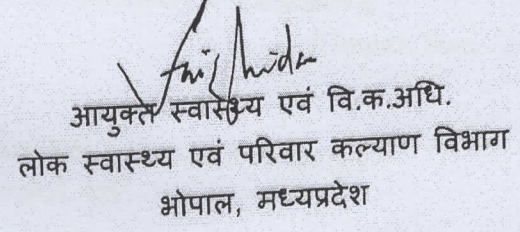 आयुक्त स्वास्थ्य एवं वि.क.अधि.
लोक स्वास्थ्य एवं परिवार कल्याण विभाग
भोपाल, मध्यप्रदेश